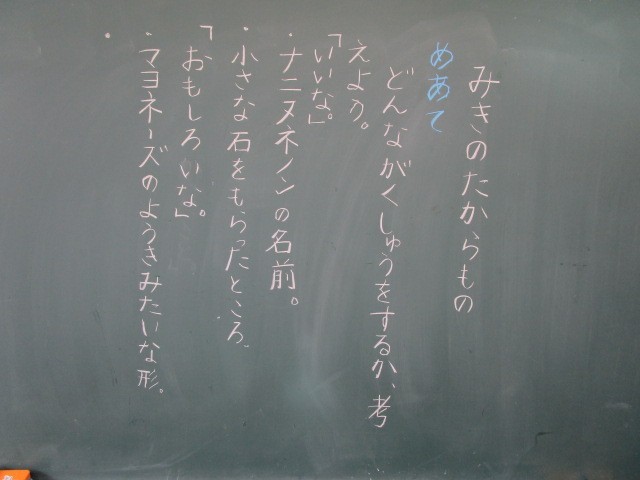 みきのたからもの
めあて
どんながくしゅうをするか、考
えよう。
「いいな。」
・ナニヌネノンの名前。
・小さな石をもらったところ。
「おもしろいな。」
・マヨネーズのようきみたいな形。
・